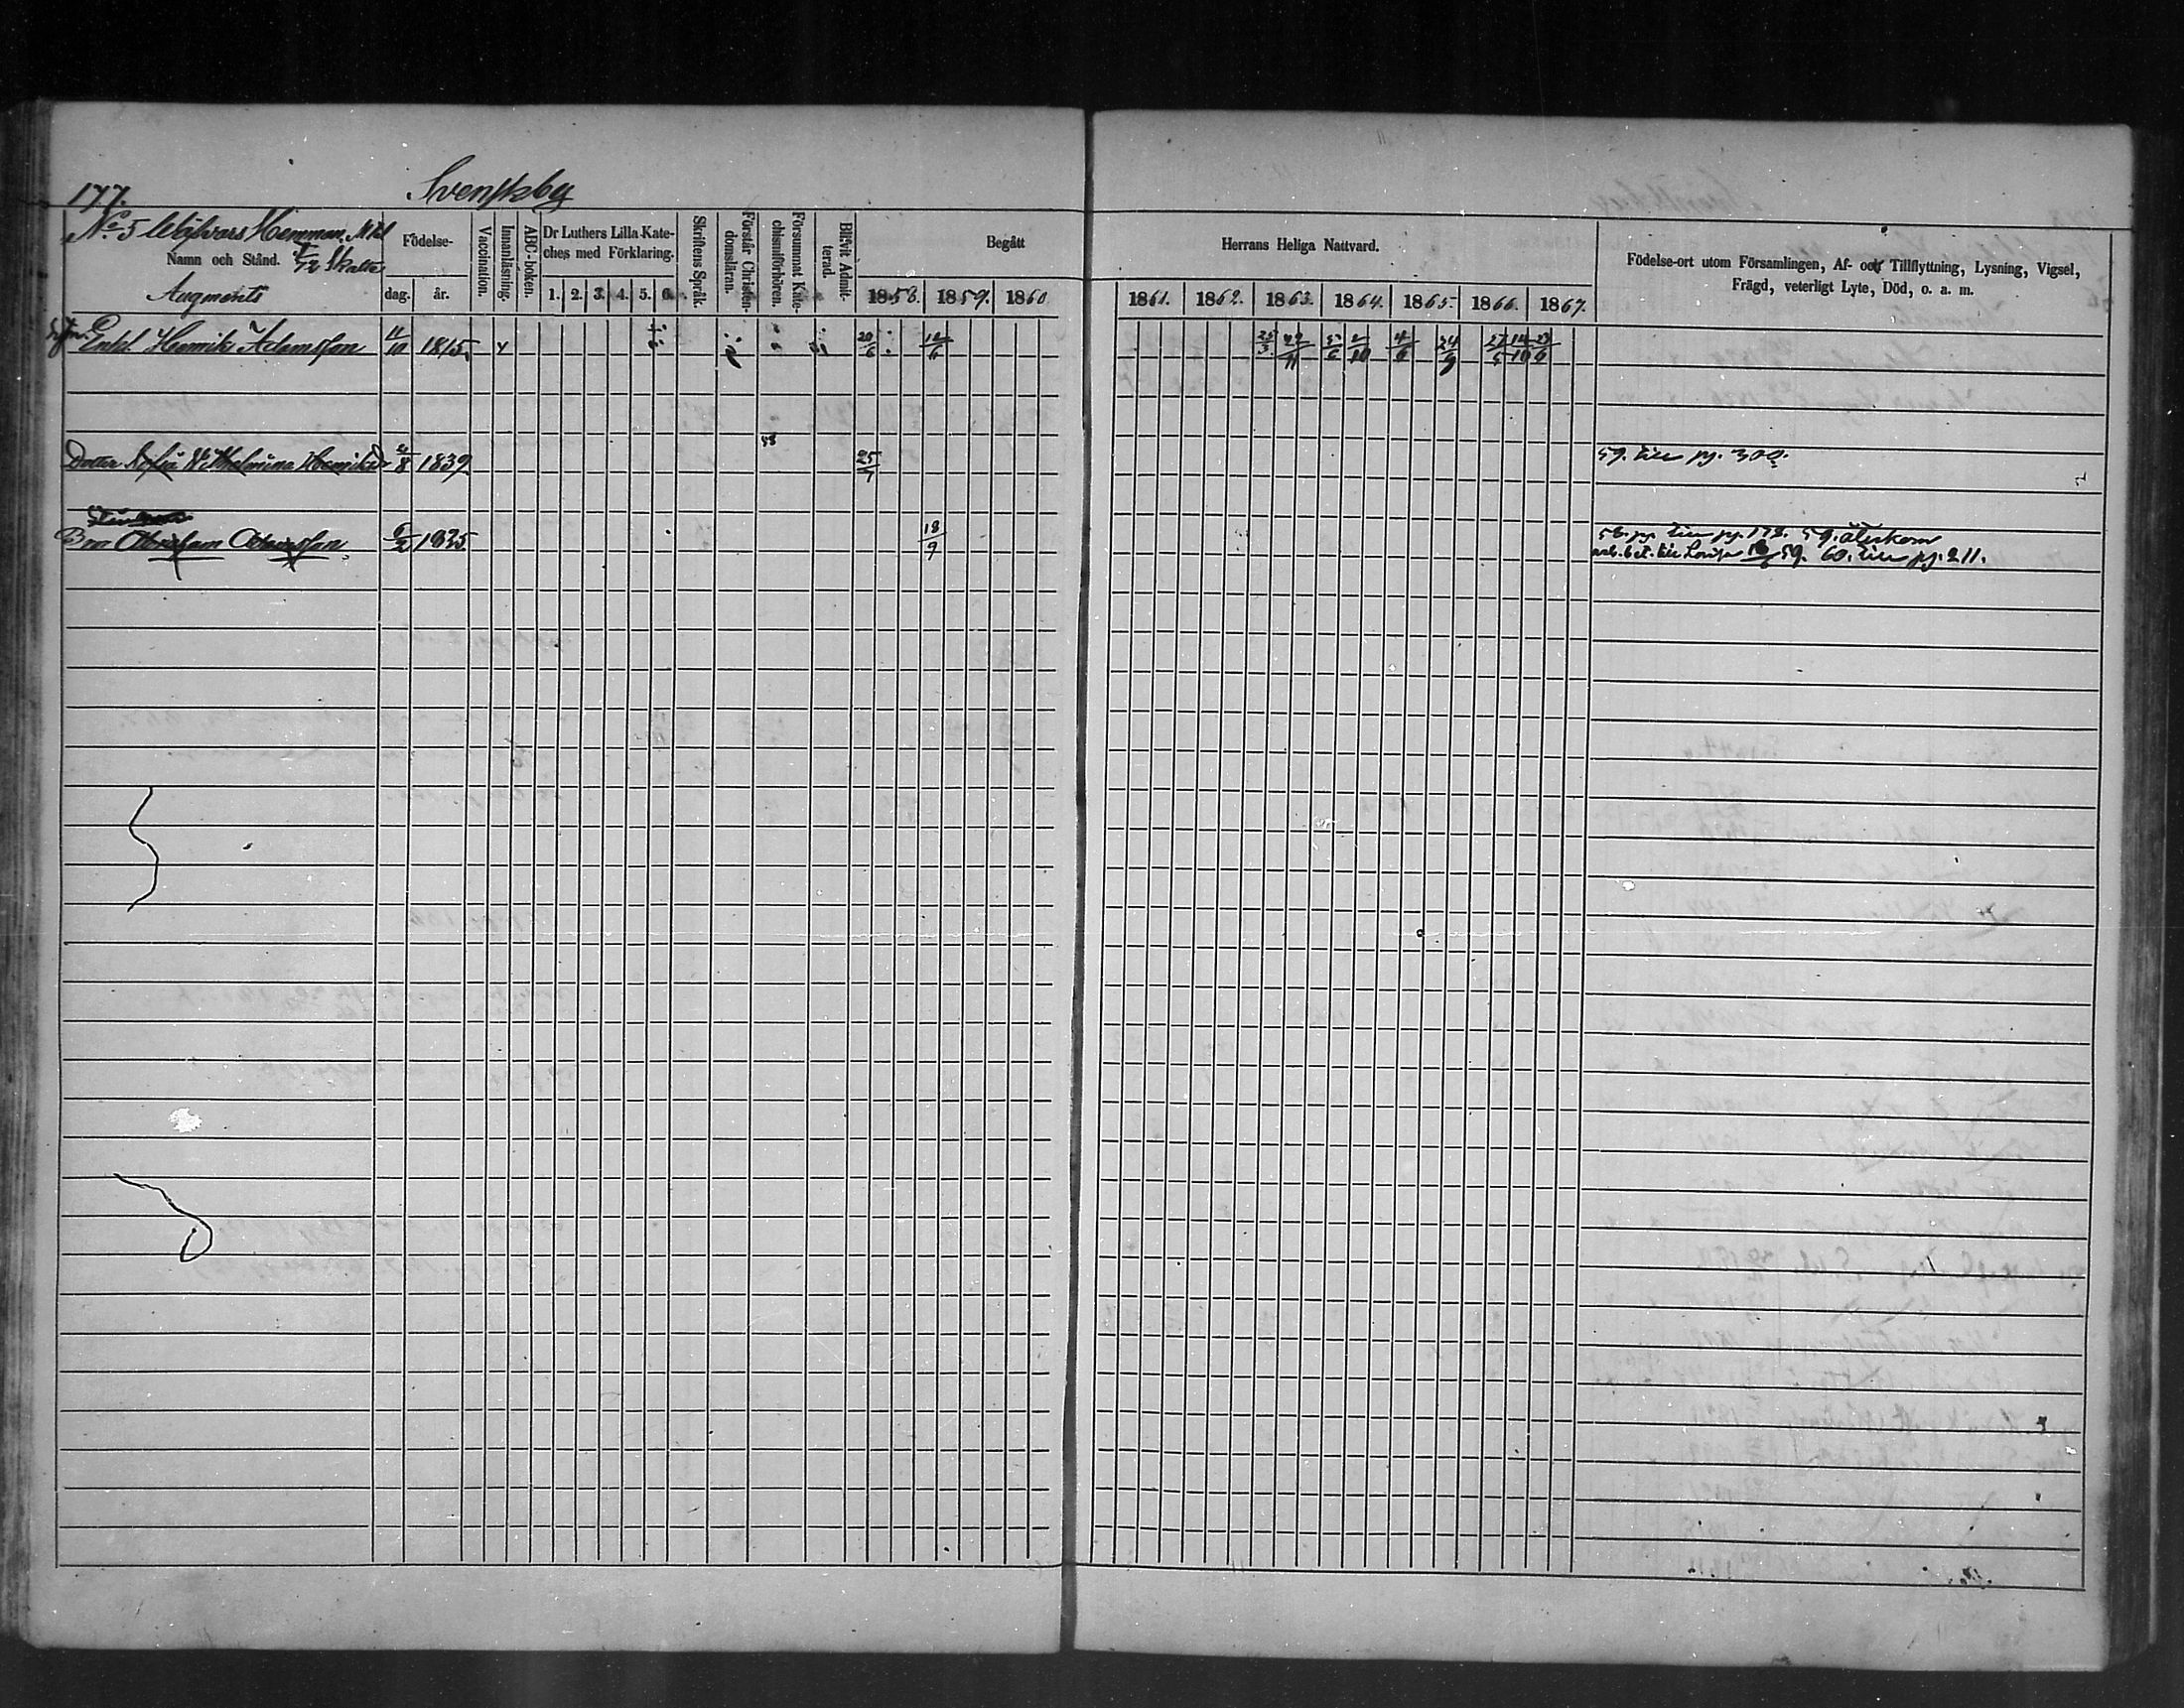 177.
Svenskby
No 5 Hemman, Mtl
Namn och Stånd.
1/2 Skatte
Augments
Födelse-
dag. år.
Vaccination.
Innanläsning.
ABC-boken.
Dr Luthers Lilla Kate-
ches med Förklaring.
1. 2. 3. 4. 5. 6.
Skriftens Språk.
Förstår Christen-
domsläran.
Försummat Kate-
chismiförhören.
Blifvit Admit-
terad.
Begått
1858. 1859. 1860
Herrans Heliga Nattvard.
1861. 1862. 1863. 1864. 1865. 1866. 1867.
Födelse-ort utom Församlingen, Af- och Tillflyttning, Lysning, Vigsel,
Frägd, veterligt Lyte, Död, o. a. m.
Enkl. Henrik Adamsson 11/10 1815. 20/6 12/6 25/3 22/11 5/6 2/10 4/6 24/9 27/5 14/10 23/6
Dotter Sofia Wilhelmina Henriksd 2/8 1839. 58 25/7 59. till pg. 300.
Bror Abraham Adamsson 6/2 1835. 18/9 58. pg. till pg. 178. 59. återkom
arb. bet. till Lovisa 59. 60. till pg. 211.